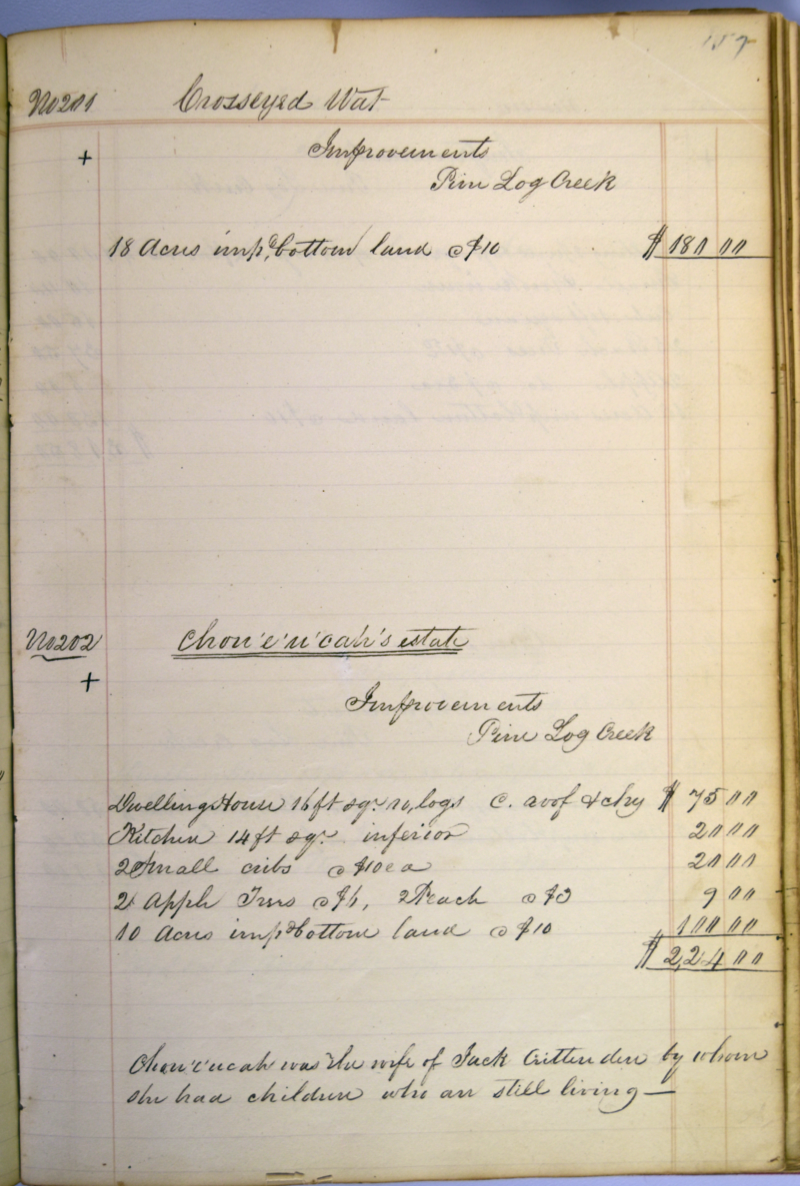 157
No 201 Crosseyed Wat
+
Improvements
Pine Log Creek
18 Acres imp'd bottom land @ $10 $ 180 00
No 202 Chon'e'u'cah's estate
+
Improvements
Pine Log Creek
Dwelling House 16 ft sqr. r, logs C. roof & chy $ 75 00
Kitchen 14 ft sqr. inferior 20 00
2 Small cribs @ $10 ea 20 00
2 Apple Trees @ $6, 2 Peach @ $3 9 00
10 Acres imp'd bottom land @ $10 100 00
$ 224 00
Chon'e'ucah was the wife of Jack Crittenden by whom
she had children who are still living —